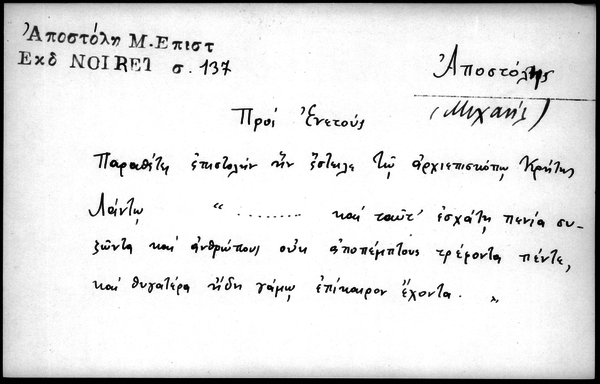 Ἀποστόλη Μ. Επιστ
Εκδ NOIRET σ. 137
Ἀποστόλης
(Μιχαήλ)
Πρὸς Ἐνετούς
Παραθέτει ἐπιστολὴν ἣν ἔστειλε τῷ ἀρχιεπισκόπῳ Κρήτης
Λάντῳ " ........ καὶ ταῦτ' ἐσχάτῃ πενίᾳ συ-
ζῶντα καὶ ἀνθρώπους οὐκ ἀποπέμπτους τρέφοντα πέντε,
καὶ θυγατέρα ἤδη γάμῳ ἐπίκαιρον ἔχοντα. "